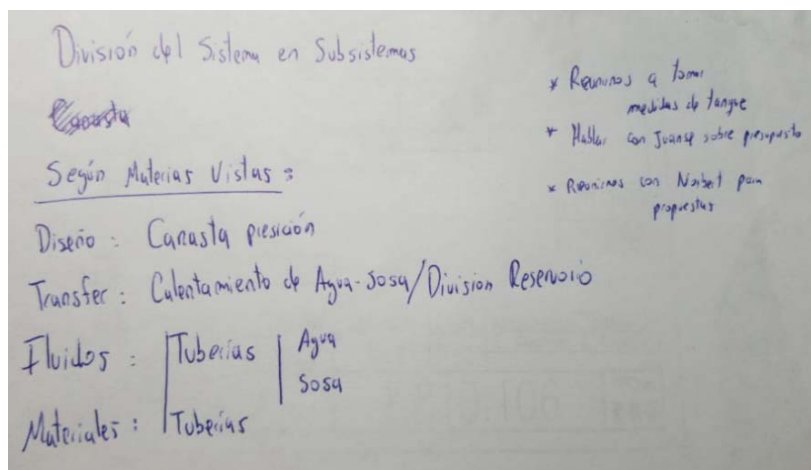 División del Sistema en Subsistemas
Según Materias Vistas :
Diseño : Canasta presición
Transfer : Calentamiento de Agua-Sosa/Division Reservorio
Fluidos : Tuberías | Agua
Sosa
Materiales : Tuberías
* Reunirnos a tomar
medidas de tanque
* Hablar con Juanse sobre presupuesto
* Reunirnos con Norbert para
propuestas